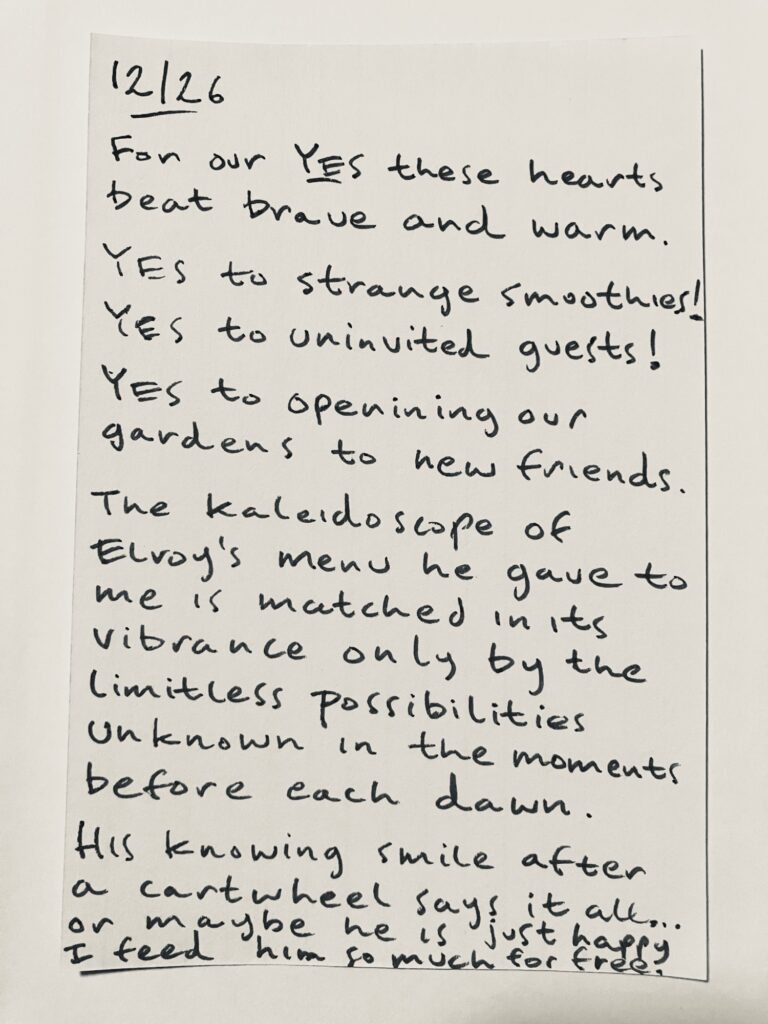 12/26
For our YES these hearts
beat brave and warm.
YES to strange smoothies!
YES to uninvited guests!
YES to openining our
gardens to new friends.
The kaleidoscope of
Elroy's menu he gave to
me is matched in its
vibrance only by the
limitless possibilities
unknown in the moments
before each dawn.
His knowing smile after
a cartwheel says it all...
or maybe he is just happy
I feed him so much for free.